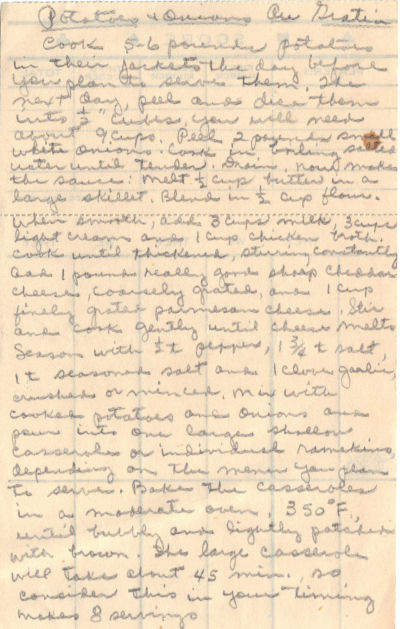 Potatoes & Onions Au Gratin
Cook 5-6 pounds potatoes
in their jackets the day before
you plan to serve them. The
next day, peel and dice them
into ½" cubes, you will need
about 9 cups. Peel 2 pounds small
white onions. Cook in boiling salted
water until tender. Drain. Now make
the sauce: Melt ½ cup butter in a
large skillet. Blend in ½ cup flour.
When smooth, add 3 cups milk, 3 cups
light cream and 1 cup chicken broth.
Cook until thickened, stirring constantly
Add 1 pound really good sharp cheddar
cheese, coarsely grated, and 1 cup
finely grated parmesan cheese. Stir
and cook gently until cheese melts
Season with ½ t pepper, 1 ¾ t salt,
1 t seasoned salt and 1 clove garlic,
crushed or minced. Mix with
cooked potatoes and onions and
pour into one large shallow
casserole or individual ramekins,
depending on the menu you plan
to serve. Bake the casseroles
in a moderate oven, 350°F,
until bubbly and lightly patched
with brown. The large casserole
will take about 45 min., so
consider this in your timing
makes 8 servings